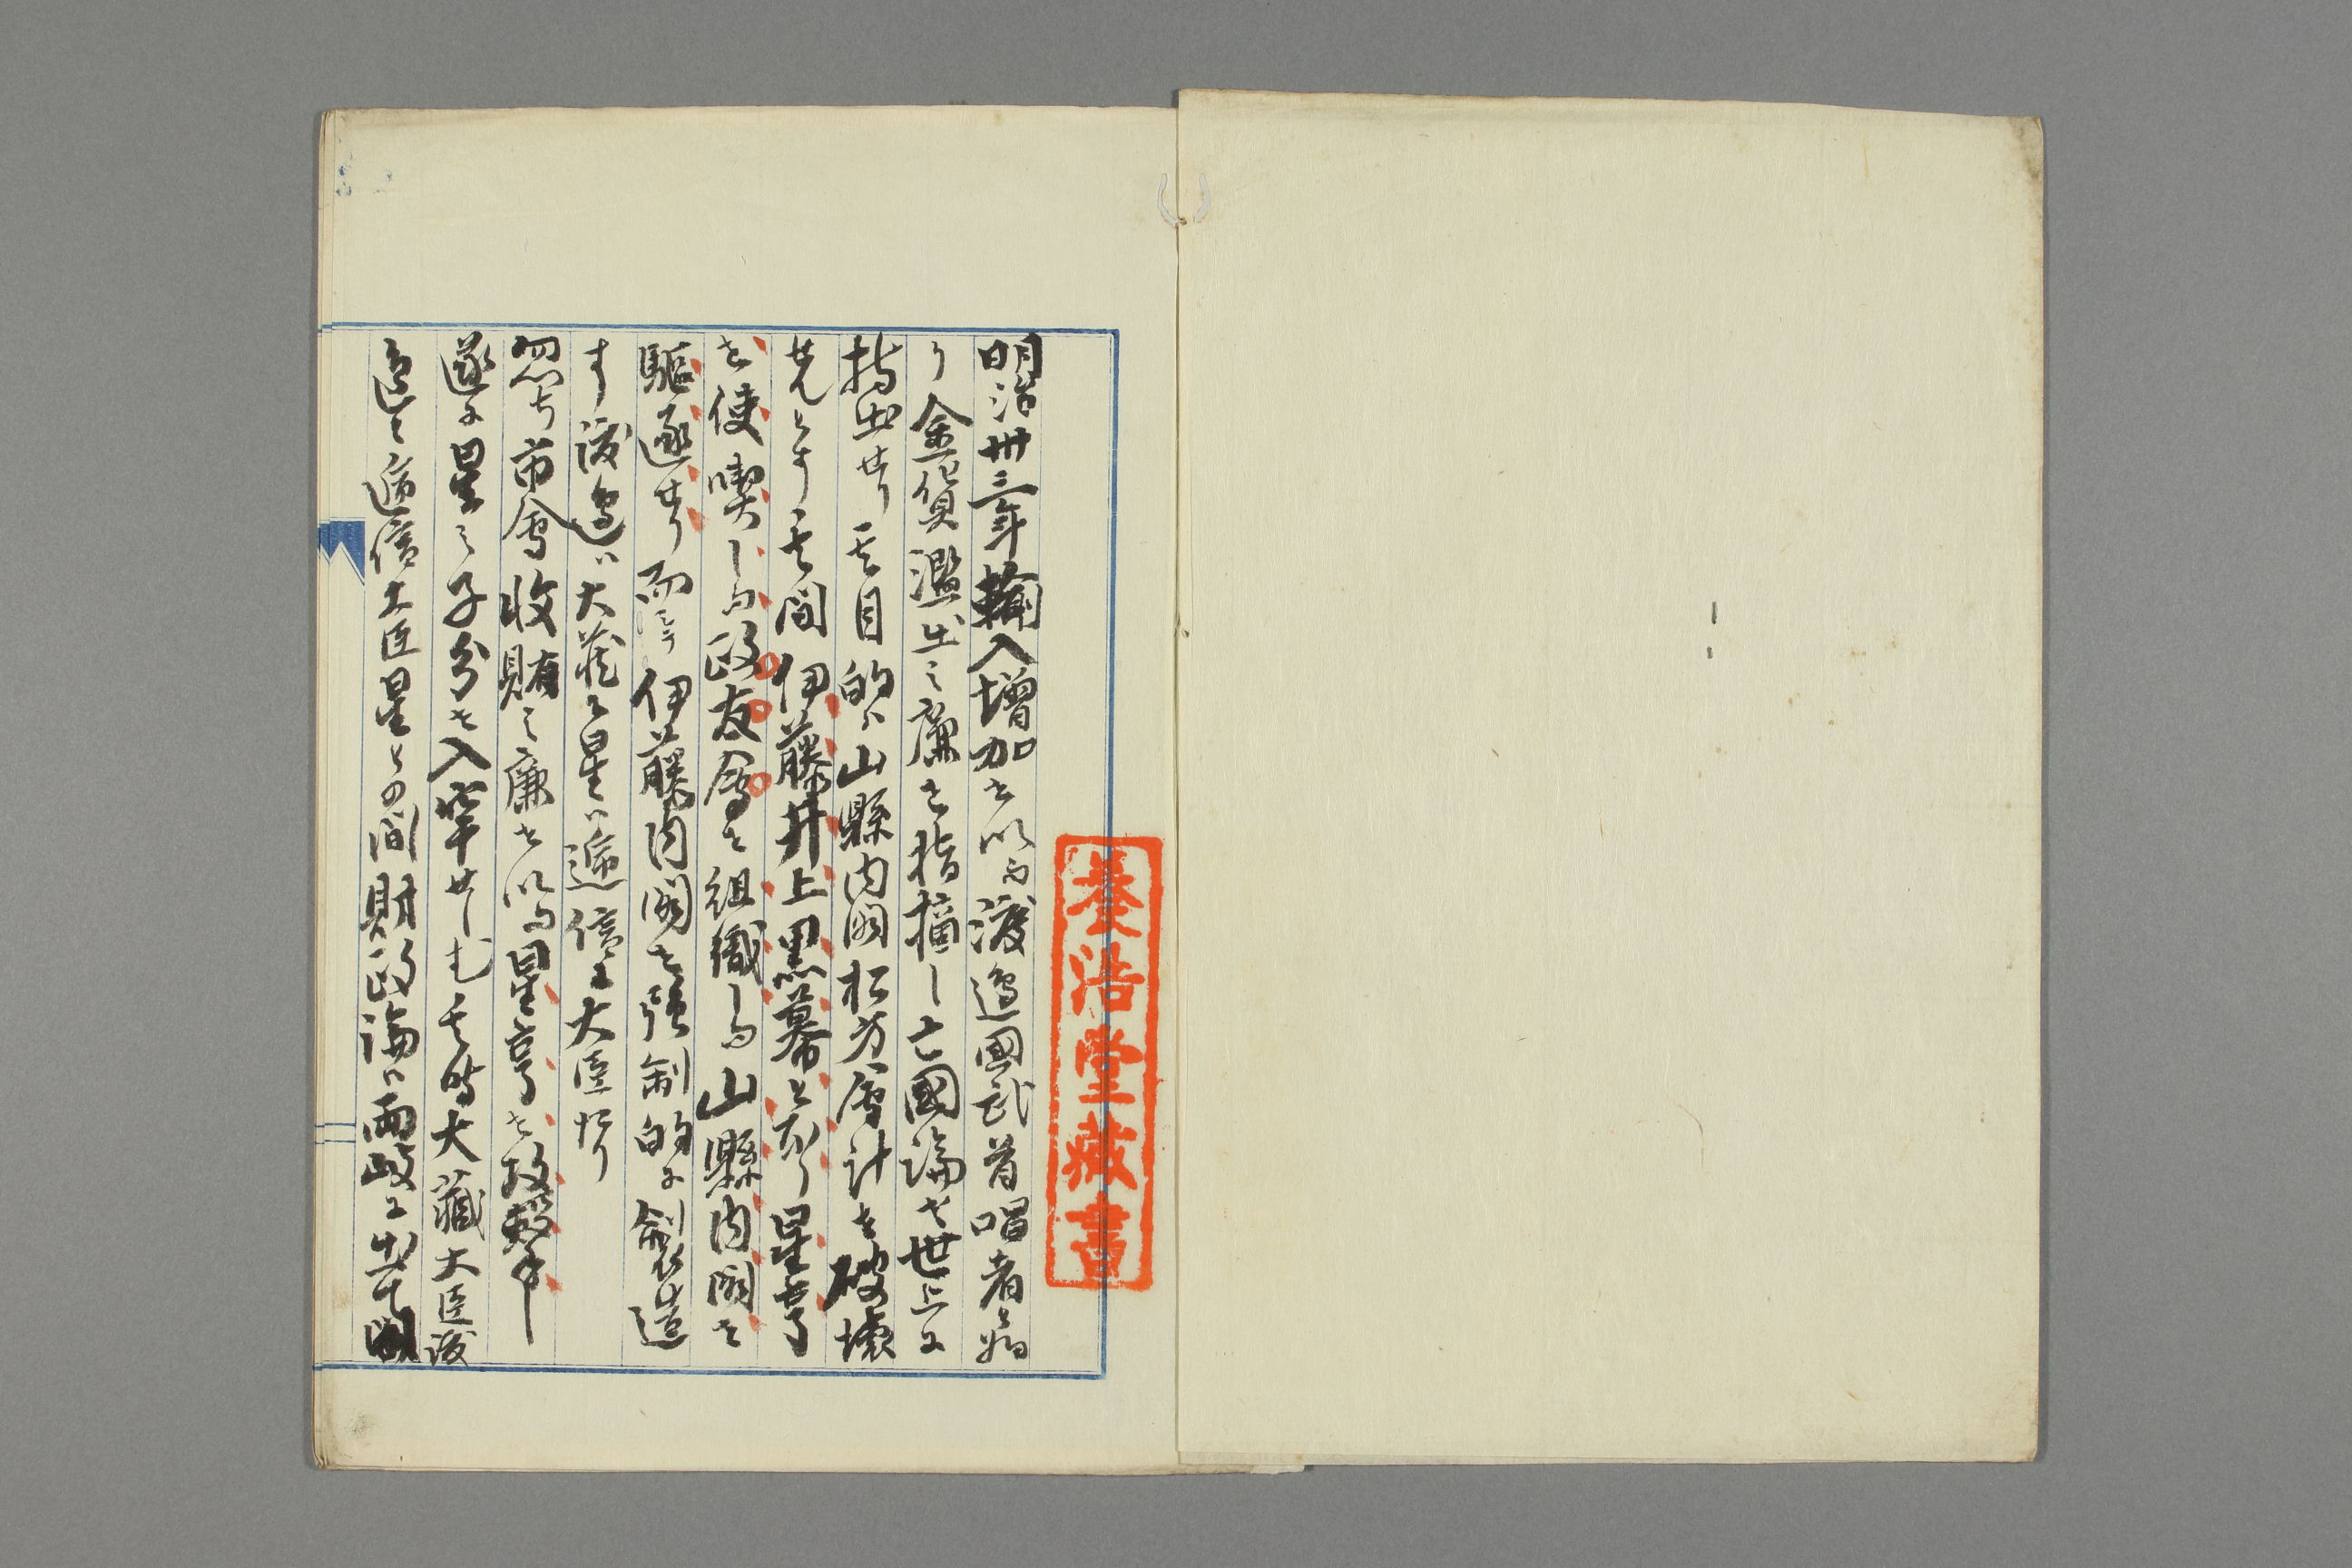 明治卅三年輸入増加を以て渡邉國武首唱者と為
り金貨濫出之廉を指摘し亡國論を世上に
持出せり其目的ハ山縣内閣松方會計を破壊
せんとす其間伊藤井上黒幕となり星亨
を使嗾して政友會を組織して山縣内閣を
駆逐せり而シテ伊藤内閣を強制的に製造
す渡邉ハ大蔵に星ハ逓信に大臣たり
忽ち市會收賄之廉を以て星亨を攻撃し
遂に星之子分を入牢せしむ其時大藏大臣渡
邉と逓信大臣星との間財政論ハ両岐に出て
養浩堂藏書